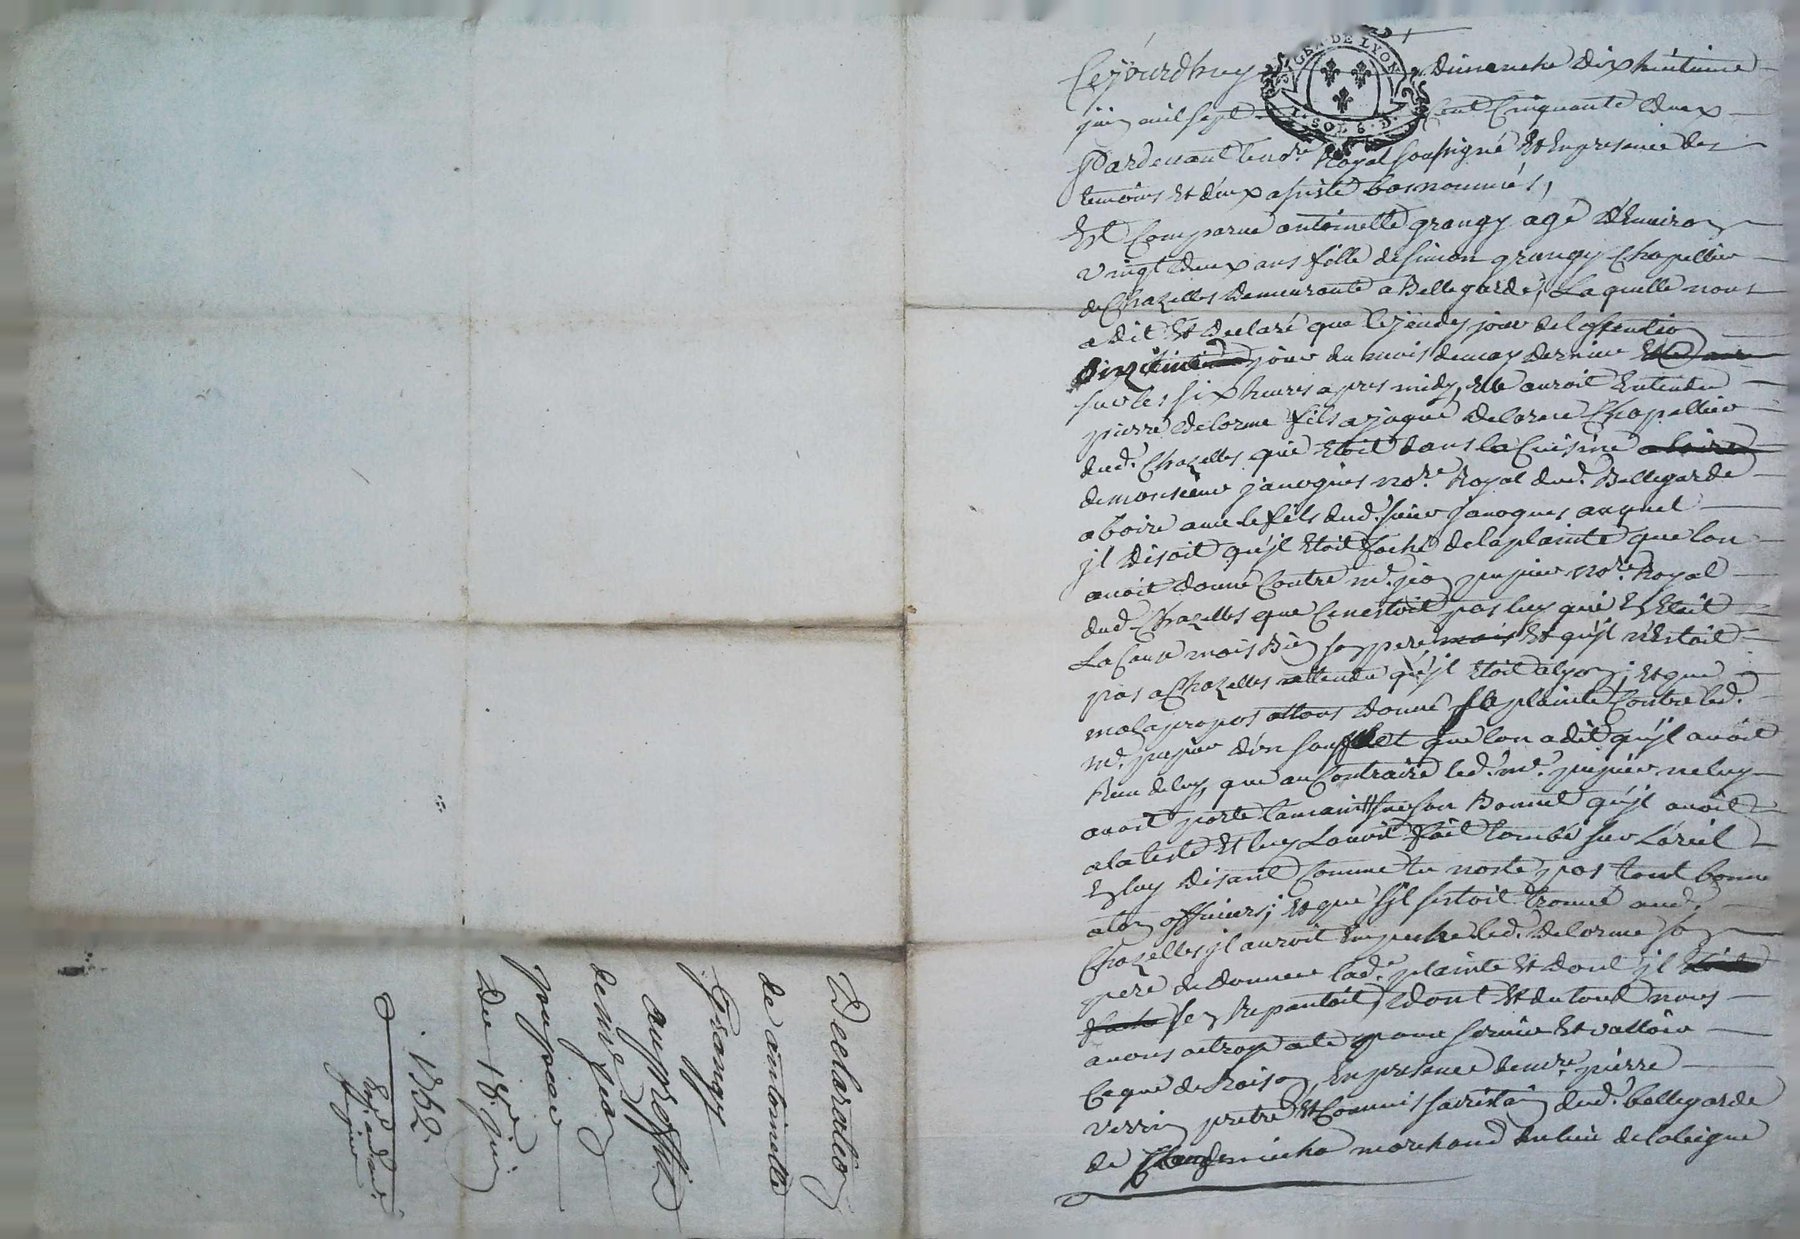 GEN. DE LYON
1. SOL 6. D.
Cejourdhuy dimanche dixhuitieme
juin mil sept cent cinquante deux
Pardevant le no.re Royal soussigné Et En presence des
temoins Et deux assisté bas nommés,
Est Comparue antoinette grangy agé d'Environ
vingt deux ans fille de simon grangy Chapellier
de Chazelles demeurante a Bellegarde, Laquelle nous
a dit Et declaré que le jeudy jour de lassention
dixieme jour du mois de may dernier
sur les six heures apres midy, Elle auroit Entendu
pierre delorme fils a jaque delorme Chapellier
dud. Chazelles qui Etoit dans la Cuisine
de monsieur janoques no.re Royal dud. Bellegarde
a boire avec le fils dud. sieur janoques auquel
jl disoit qu'jl Etoit faché de la plainte que lon
avoit donné Contre m.e jean pupier no.re Royal
dud. Chazelles que Ce nestoit pas luy qui En Etoit
La Cause mais Bien son pere mais Et qu'jl n'Estoit
pas a Chazelles attendu qu'jl Etoit a lyon; Et que
mal a propos donné sa plainte Contre led.
m.e pupier d'un soufflet que lon a dit qu'jl avoit
Reçu de luy, que au Contraire led. m.e pupier ne luy
avoit porté la main sur son Bonnet qu'jl avoit
a la teste Et luy L'avoit fait tombé sur L'œuil
En luy disant Comme tu n'oste pas ton bonnet
a ton officiers; Et que s'jl s'estoit trouvé aud.
Chazelles jl auroit Empeché led. delorme son
pere de donner lad.e plainte Et dont jl
se Repantoit, dont Et du tout nous
avons octroyé acte pour servir Et valloir
Ce que de Raison, En presence de m.re pierre
verrin pretre Et Commis sacristain dud. bellegarde
de marchand du lieu de
Declaration
de antoinette
Grangy
au proffit
de m.e jean
pupier
Du 18.e juin
1752.